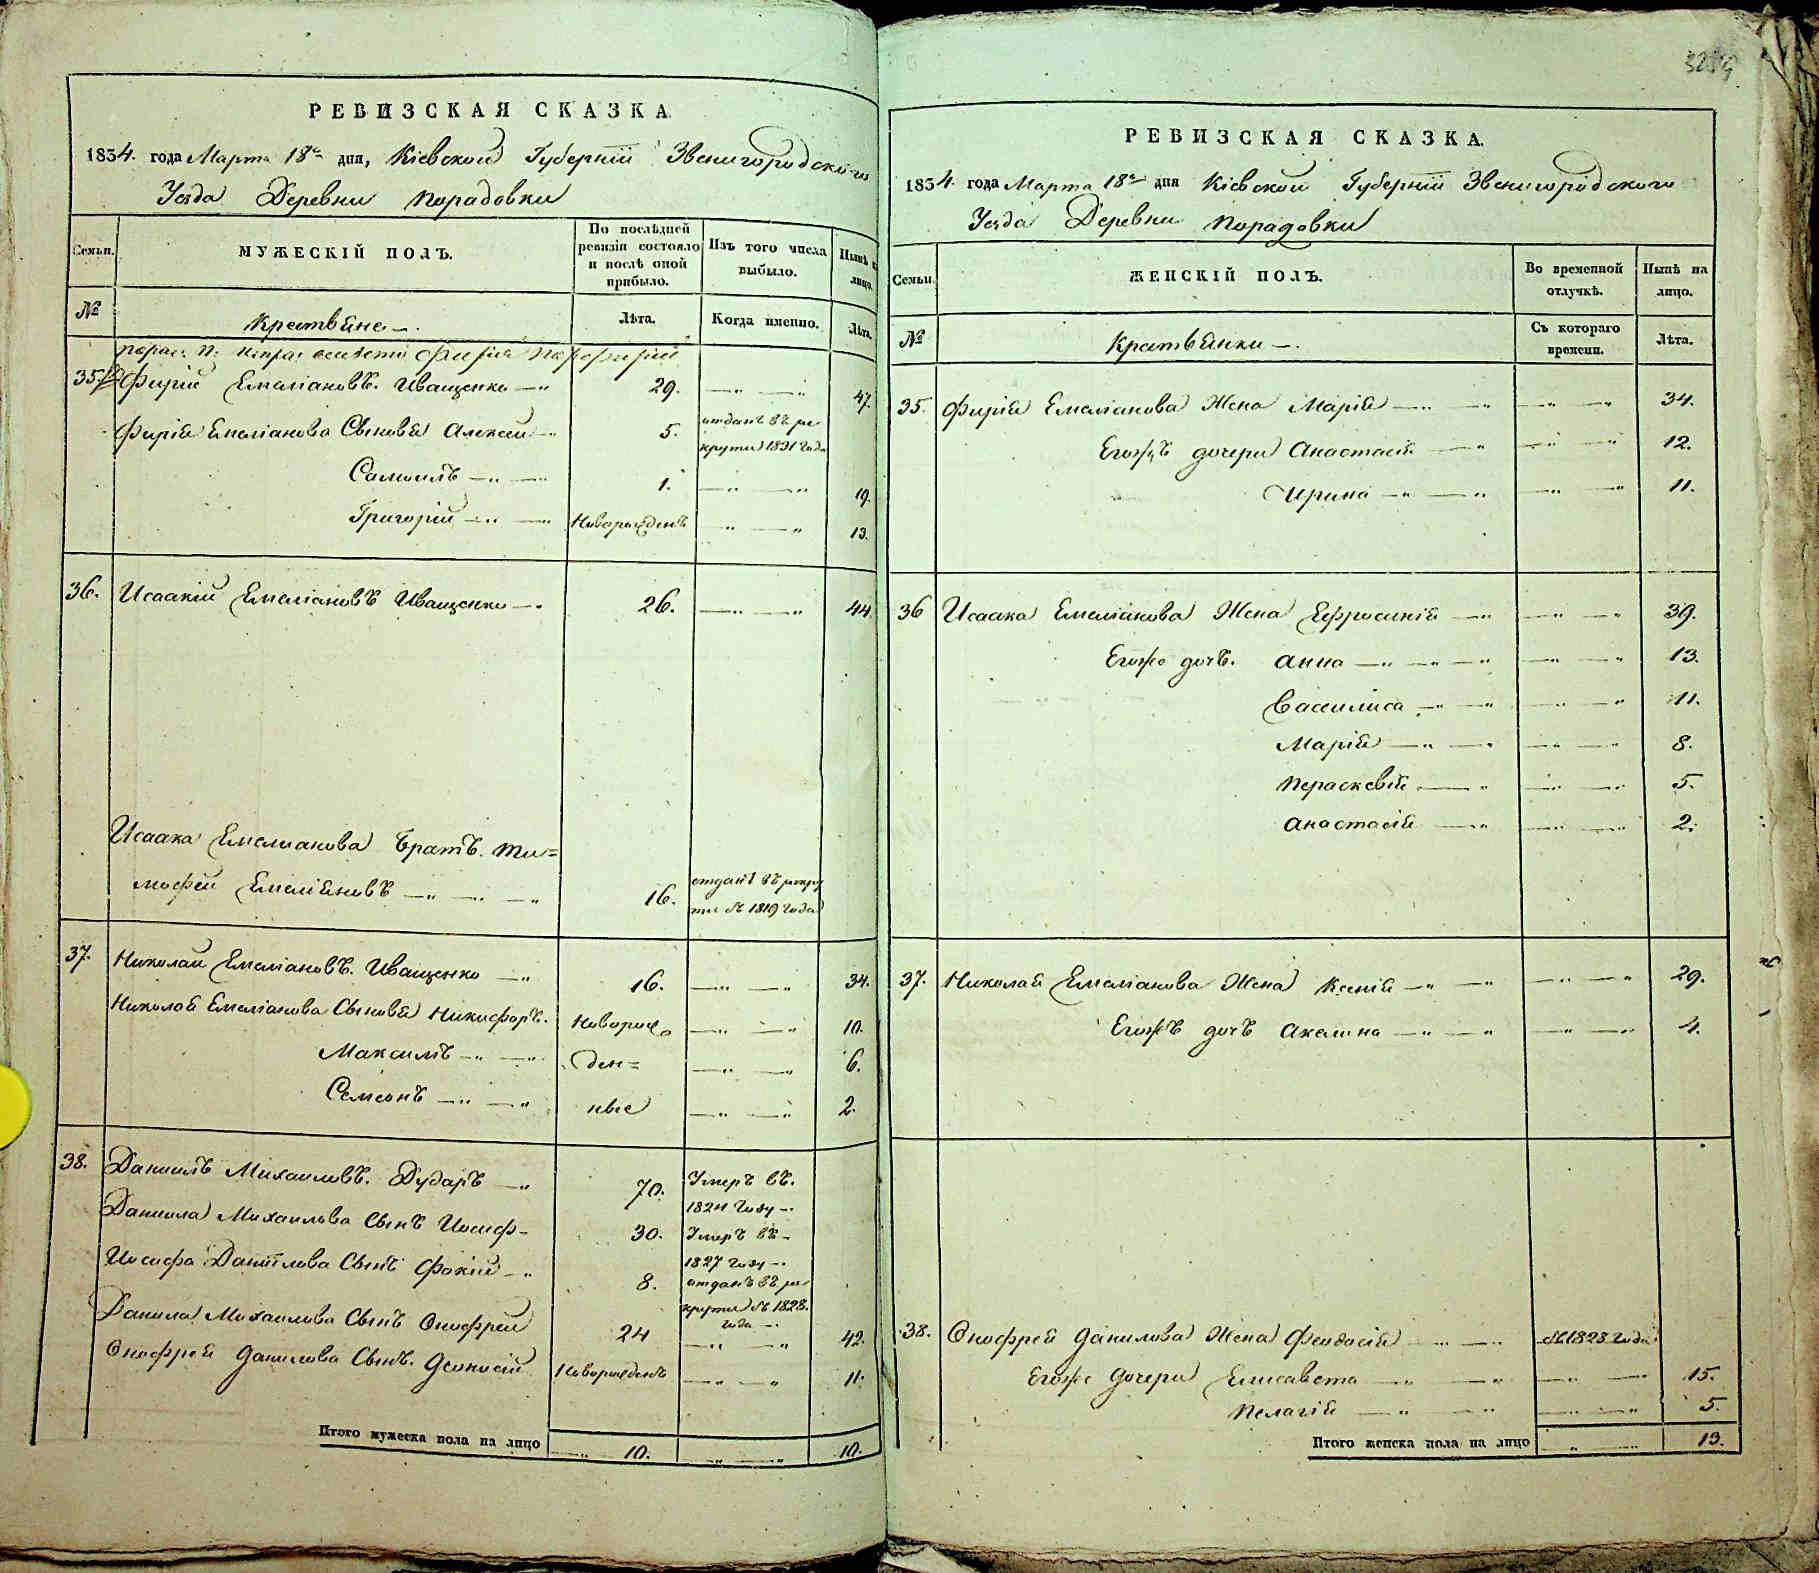 РЕВИЗСКАЯ СКАЗКА.
1834. года Марта 18го дня, Кіевской Губерніи Звенигородского
Уезда Деревни Порадовки
Семьи.
МУЖЕСКІЙ ПОЛЪ.
По послѣдней ревизіи состояло и послѣ оной прибыло.
Изъ того числа выбыло.
Нынѣ на лицо.
№
Крестьяне
Лѣта.
Когда именно.
Лѣта.
Фирій Порфирій
35. Фирій Емеліановъ. Иващенко 29. 47.
Фирія Емеліанова Сыновья Алексѣй 5. отданъ въ рекруты 1831 года
Самоилъ 1. 19.
Григорій Новорожденъ 13.
36. Исаакій Емеліановъ Иващенко 26. 44.
Исаака Емелианова Братъ. Ти=
мофей Емеліяновъ 16. отданъ въ рекруты въ 1819 года
37. Николай Емеліановъ. Иващенко 16. 34.
Николая Емеліанова Сыновья Никифоръ. Новорож 10.
Максимъ ден= 6.
Семеонъ ные 2.
38. Даниилъ Михаиловъ. Дударъ 70. Умеръ въ. 1824 году
Даниила Михаилова Сынъ Иосиф 30. Умеръ въ 1827 году
Иосифа Данілова Сынъ Фокій 8. отданъ въ рекруты въ 1828. года
Данила Михаилова Сынъ Онофрей 24 42.
Онофрея Данилова Сынъ. Діонисій Новорожденъ 11.
Итого мужеска пола на лицо 10. 10.
РЕВИЗСКАЯ СКАЗКА.
1834. года Марта 18го дня Кіевской Губерніи Звенигородского
Уезда Деревни Порадовки
Семьи.
ЖЕНСКІЙ ПОЛЪ.
Во временной отлучкѣ.
Нынѣ на лицо.
№
Крестьянки
Съ котораго времени.
Лѣта.
35. Фирія Емеліанова Жена Марія 34.
Егожъ дочери Анастасія 12.
Ирина 11.
36 Исаака Емеліанова Жена Ефросинія 39.
Егоже дочъ. Анна 13.
Василиса 11.
Марія 8.
Параскевія 5.
Анастасія 2.
37. Николая Емеліанова Жена Ксенія 29.
Егожъ дочъ Акелина 4.
38. Онофрея Данилова Жена Феодосія въ 1828 года
Егоже Дочери Елисавета 15.
Пелагія 5.
Итого женска пола на лицо 13.